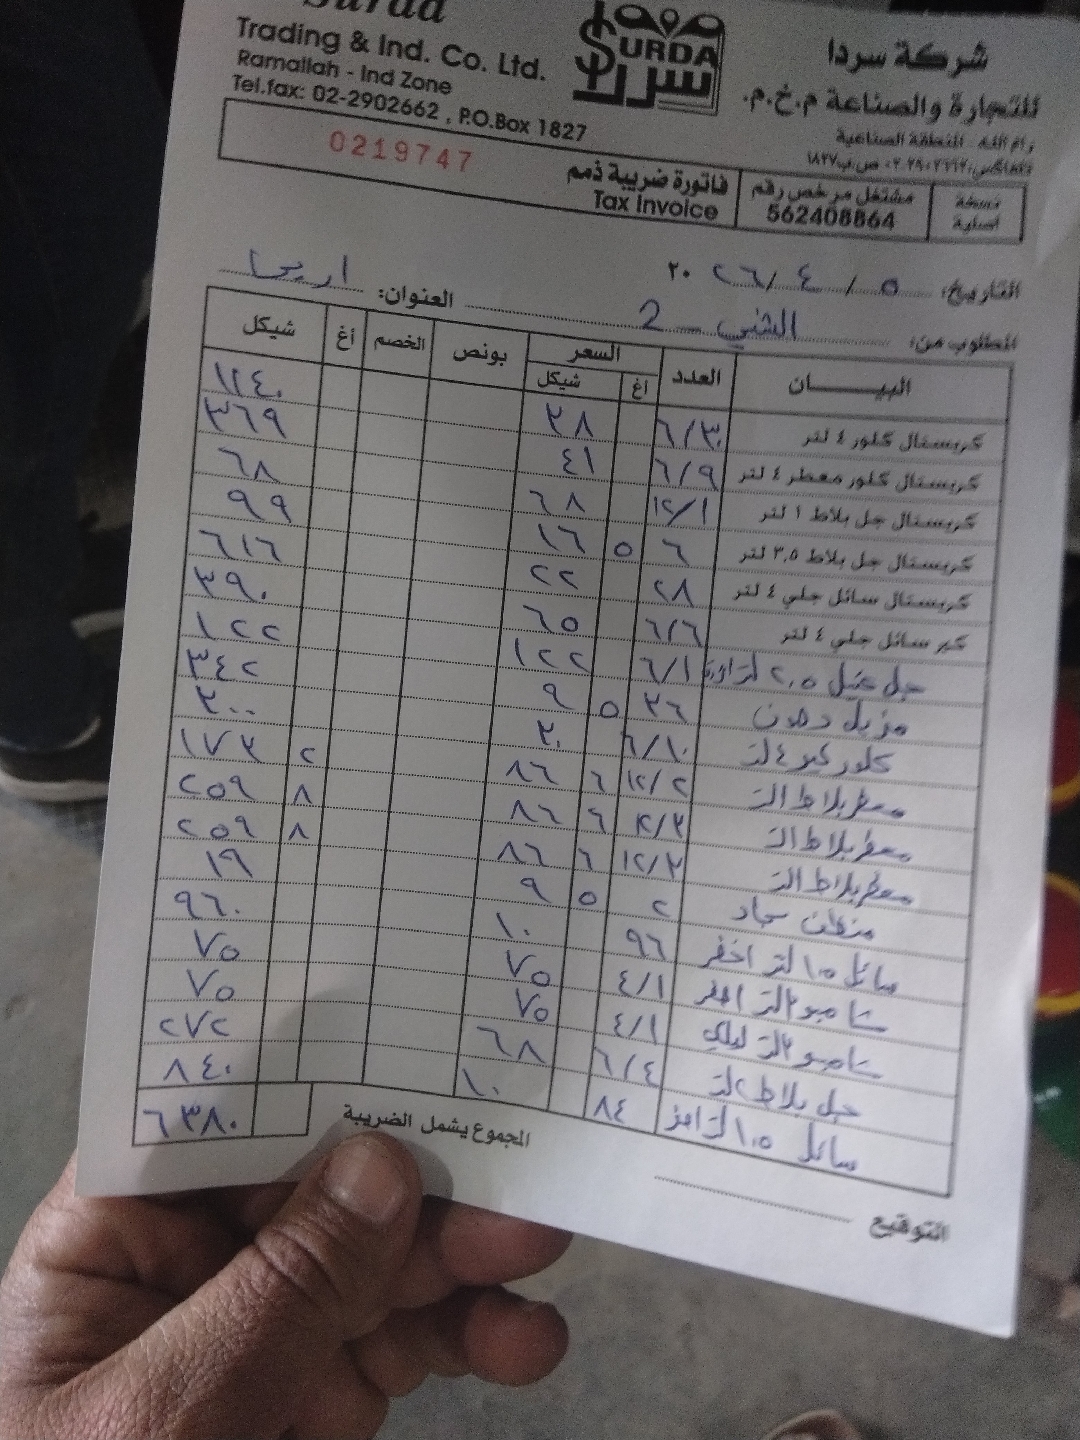 Surda
Trading & Ind. Co. Ltd.
Ramallah - Ind Zone
Tel.fax: 02-2902662 , P.O.Box 1827
SURDA
سردا
شركة سردا
للتجارة والصناعة م.خ.م.
رام الله - المنطقة الصناعية
تلفاكس: ٢٩٠٢٦٦٢-٠٢ ص.ب ١٨٢٧
0219747
فاتورة ضريبة ذمم
Tax Invoice
مشتغل مرخص رقم
562408864
نسخة
اصلية
التاريخ: ٥ / ٤ / ٢٠٢٦
المطلوب من: الشني 2 العنوان: اريحا
البيــــــان العدد السعر بونص الخصم أغ شيكل
أغ شيكل
كريستال كلور ٤ لتر ٦/٣٠ ٢٨
كريستال كلور معطر ٤ لتر ٦/٩ ٤١ ٣٦٩
كريستال جل بلاط ١ لتر ١٢/١ ٦٨ ٦٨
كريستال جل بلاط ٣,٥ لتر ٦ ٥ ١٦ ٩٩
كريستال سائل جلي ٤ لتر ٢٨ ٢٢ ٦١٦
كير سائل جلي ٤ لتر ٦/٦ ٦٥ ٣٩٠
جل غسيل ٢,٥ لتر ٦/١ ١٢٢ ١٢٢
مزيل دهون ٣٦ ٥ ٩ ٣٤٢
كلور كير ٤ لتر ٦/١٠ ٣٠ ٣٠٠
معطر بلاط ١ لتر ١٢/٢ ٦ ٨٦ ٢ ١٧٣
معطر بلاط ١ لتر ١٢/٣ ٦ ٨٦ ٨ ٢٥٩
معطر بلاط ١ لتر ١٢/٣ ٦ ٨٦ ٨ ٢٥٩
منظف سجاد ٢ ٥ ٩ ١٩
سائل ١,٥ لتر اخضر ٩٦ ١٠ ٩٦٠
شامبو ٣ لتر ٤/١ ٧٥ ٧٥
شامبو ٣ لتر ليلكي ٤/١ ٧٥ ٧٥
جل بلاط ٢ لتر ٦/٤ ٦٨ ٢٧٢
سائل ١,٥ لتر ٨٤ ١٠ ٨٤٠
المجموع يشمل الضريبة ٦٣٨٠
التوقيع